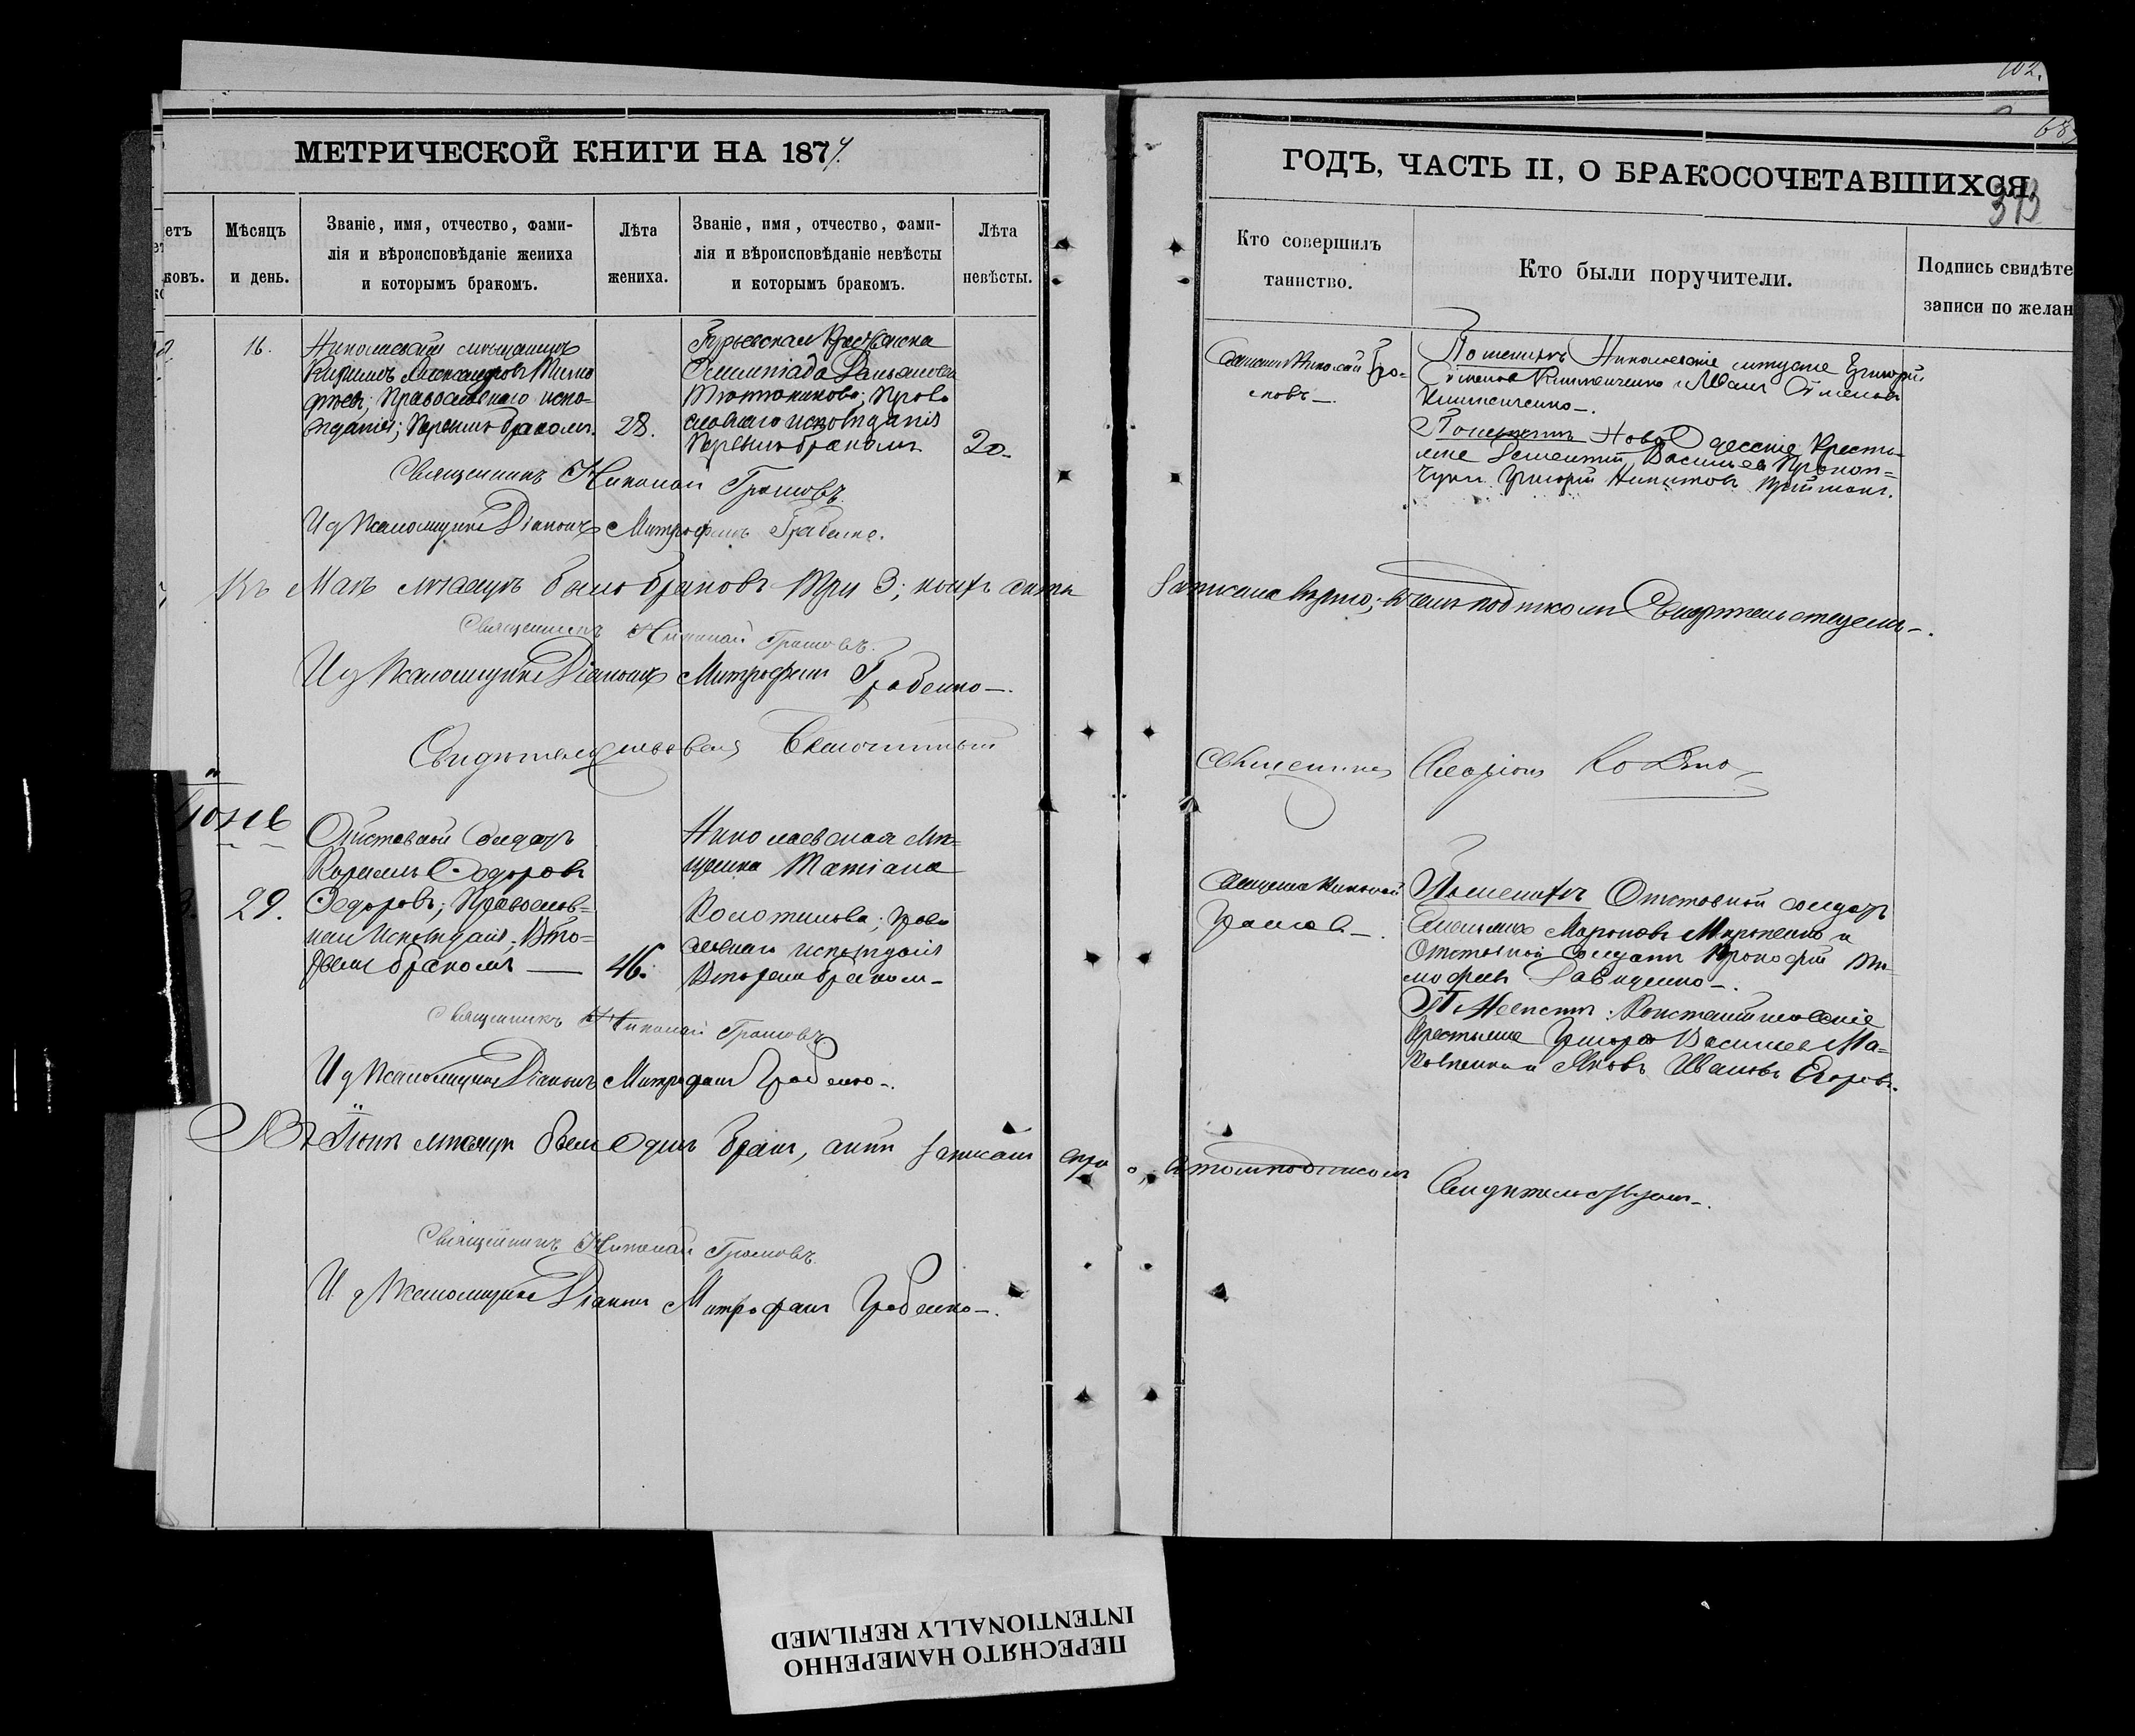 102.
68
МЕТРИЧЕСКОЙ КНИГИ НА 1874.
ГОДЪ, ЧАСТЬ II, О БРАКОСОЧЕТАВШИХСЯ.
393
Мѣсяцъ
и день.
Званіе, имя, отчество, фами-
лія и вѣроисповѣданіе жениха
и которымъ бракомъ.
Лѣта
жениха.
Званіе, имя, отчество, фами-
лія и вѣроисповѣданіе невѣсты
и которымъ бракомъ.
Лѣта
невѣсты.
Кто совершилъ
таинство.
Кто были поручители.
Подпись свидѣте
записи по желан
16.
Николаевскій мѣщанинъ
Кириллъ Александровъ Тимо
фѣевъ; Православнаго испо-
вѣданія; Первымъ бракомъ.
28.
Гурьевская Крестьянка
Право
славнаго исповѣданія
Первымъ бракомъ
20.
Священникъ Николай Гро-
мовъ.
По женихѣ Николаевскіе мѣщане Григорій
и Иванъ
По невѣстѣ Ново Одесскіе Кресть-
яне Василіевъ Прокоп-
чукъ Григорій Никитовъ
Священникъ Николай Громовъ
И д Псаломщика Діаконъ Митрофанъ Грабенко.
Въ Маѣ мѣсяцѣ было браковъ три 3; коихъ акты
записаны вѣрно; въ томъ подписомъ Свидѣтельствуемъ.
Священникъ Николай Громовъ.
И д Псаломщика Діаконъ Митрофанъ Грабенко.
Свидѣтельствовалъ Благочинный
Священникъ Иларіонъ
Іюнь
29.
Отставной Солдатъ
Корнилъ Ѳедоровъ
Ѳедоровъ; Православ-
наго Исповѣданія; Вто-
рымъ бракомъ
46.
Николаевская Мѣ-
щанка Татіана
Колотилова; Право
славнаго исповѣданія
Вторымъ бракомъ
Священникъ Николай
Громовъ.
По женихѣ Отставной солдатъ
Мироновъ Мироненко и
Отставной солдатъ Прокофій Ти-
мофѣевъ Давиденко.
По Невѣстѣ: Константиновскіе
Крестьяне Григорій Василіевъ Ма-
и Яковъ Ивановъ Егоровъ.
Священникъ Николай Громовъ
И д Псаломщика Діаконъ Митрофанъ Грабенко.
Въ Іюнѣ мѣсяцѣ былъ Одинъ бракъ, актъ записанъ вѣрно, въ томъ подписомъ
Свидѣтельствуемъ.
Священникъ Николай Громовъ.
И д Псаломщика Діаконъ Митрофанъ Грабенко.
ПЕРЕСНЯТО НАМЕРЕННО
INTENTIONALLY REFILMED